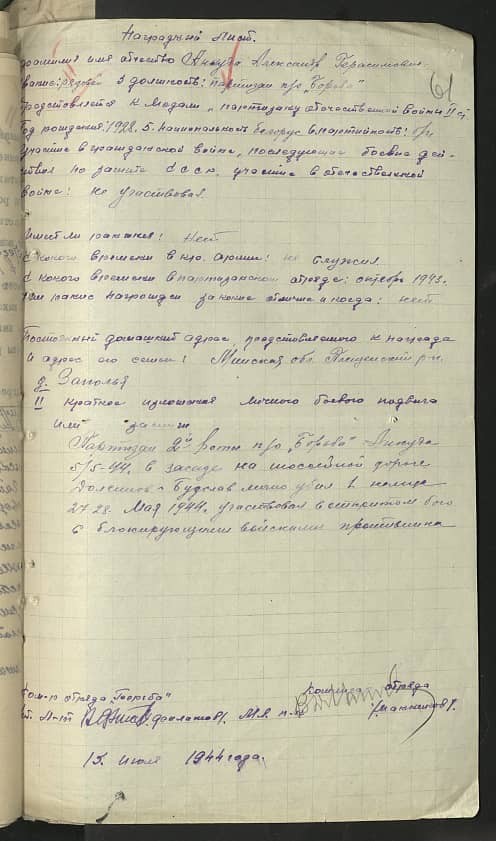 Наградный Лист.
61
имя отчество Анкуда Александр Герасимович
рядовой 3 должность: партизан п/о "Борьба"
Представляется к медали "партизану отечественной войны II ст
Год рождения: 1928. 5. национальность белорус 6. партийность: б/п
Участие в гражданской войне, последующих боевых дей-
ствиях по защите СССР, участие в отечественной
войне: не участвовал
Имеет ли ранения: Нет
С какого времени в кр. армии: не служил
С какого времени в партизанском отряде: октябрь 1943.
ранее награжден за какие отличия и когда: нет
Постоянный домашний адрес, представляемого к награде
и адрес его семьи: Минская обл. р-н.
д. Заполья
II Краткое изложение личного боевого подвига
или заслуг
Партизан 2й роты п/о "Борьба" Анкуда
5/5-44. в засаде на шоссейной дороге
Долгиново - Будслав лично убил 1 немца
27 28. Мая 1944. участвовал в открытом бою
с блокирующими войсками противника
Ком-р отряда "Борьба" Комисар отряда
М.Я.
15 июля 1944 года.